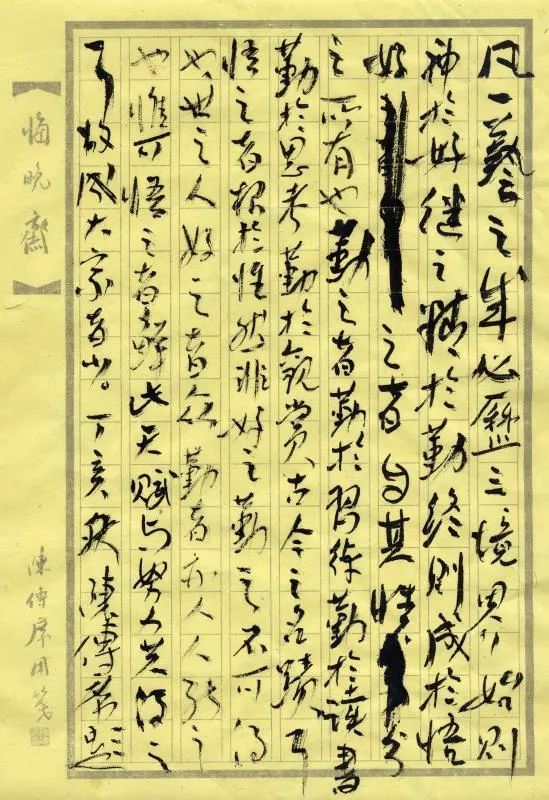 凡一藝之成必歷三境界始則
神於好继之精於勤终則成於悟
好之者自其性分
之所有也勤之者勤於習练勤於读書
勤於思考勤於观赏古今之名蹟耳
悟之者根於性然非好之勤之不可得
也世之人好之者众勤者亦人人能之
也惟可悟之者鲜此天赋与努力共得之
耳故成大家者少。丁亥秋陳傳席题
【悔晚齋】
陳傳席用箋